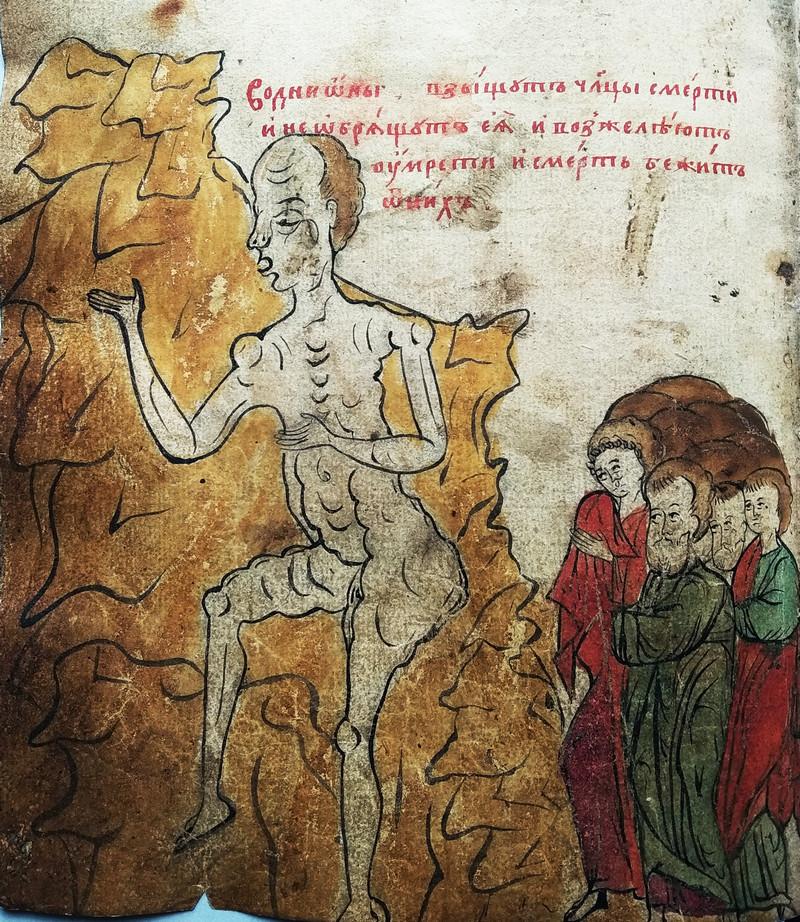 Во дни ѡ҆ны взы́щутъ чл҃цы сме́рти
и не ѡбря́щутъ еѧ̀ и возжелѣютъ
оу҆мрєти и сме́рть бежи́тъ
ѿ ни́хъ